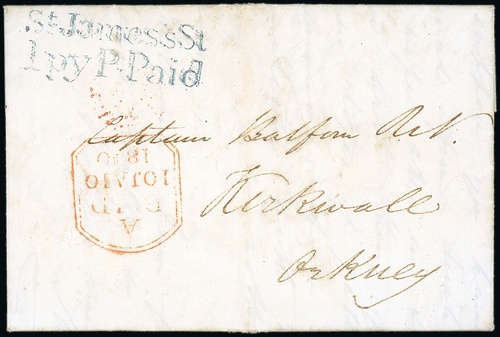 St James's St
1py P. Paid
Captain Balfour R.N.
Kirkwall
Orkney
A
PAID
10 JA 10
1840